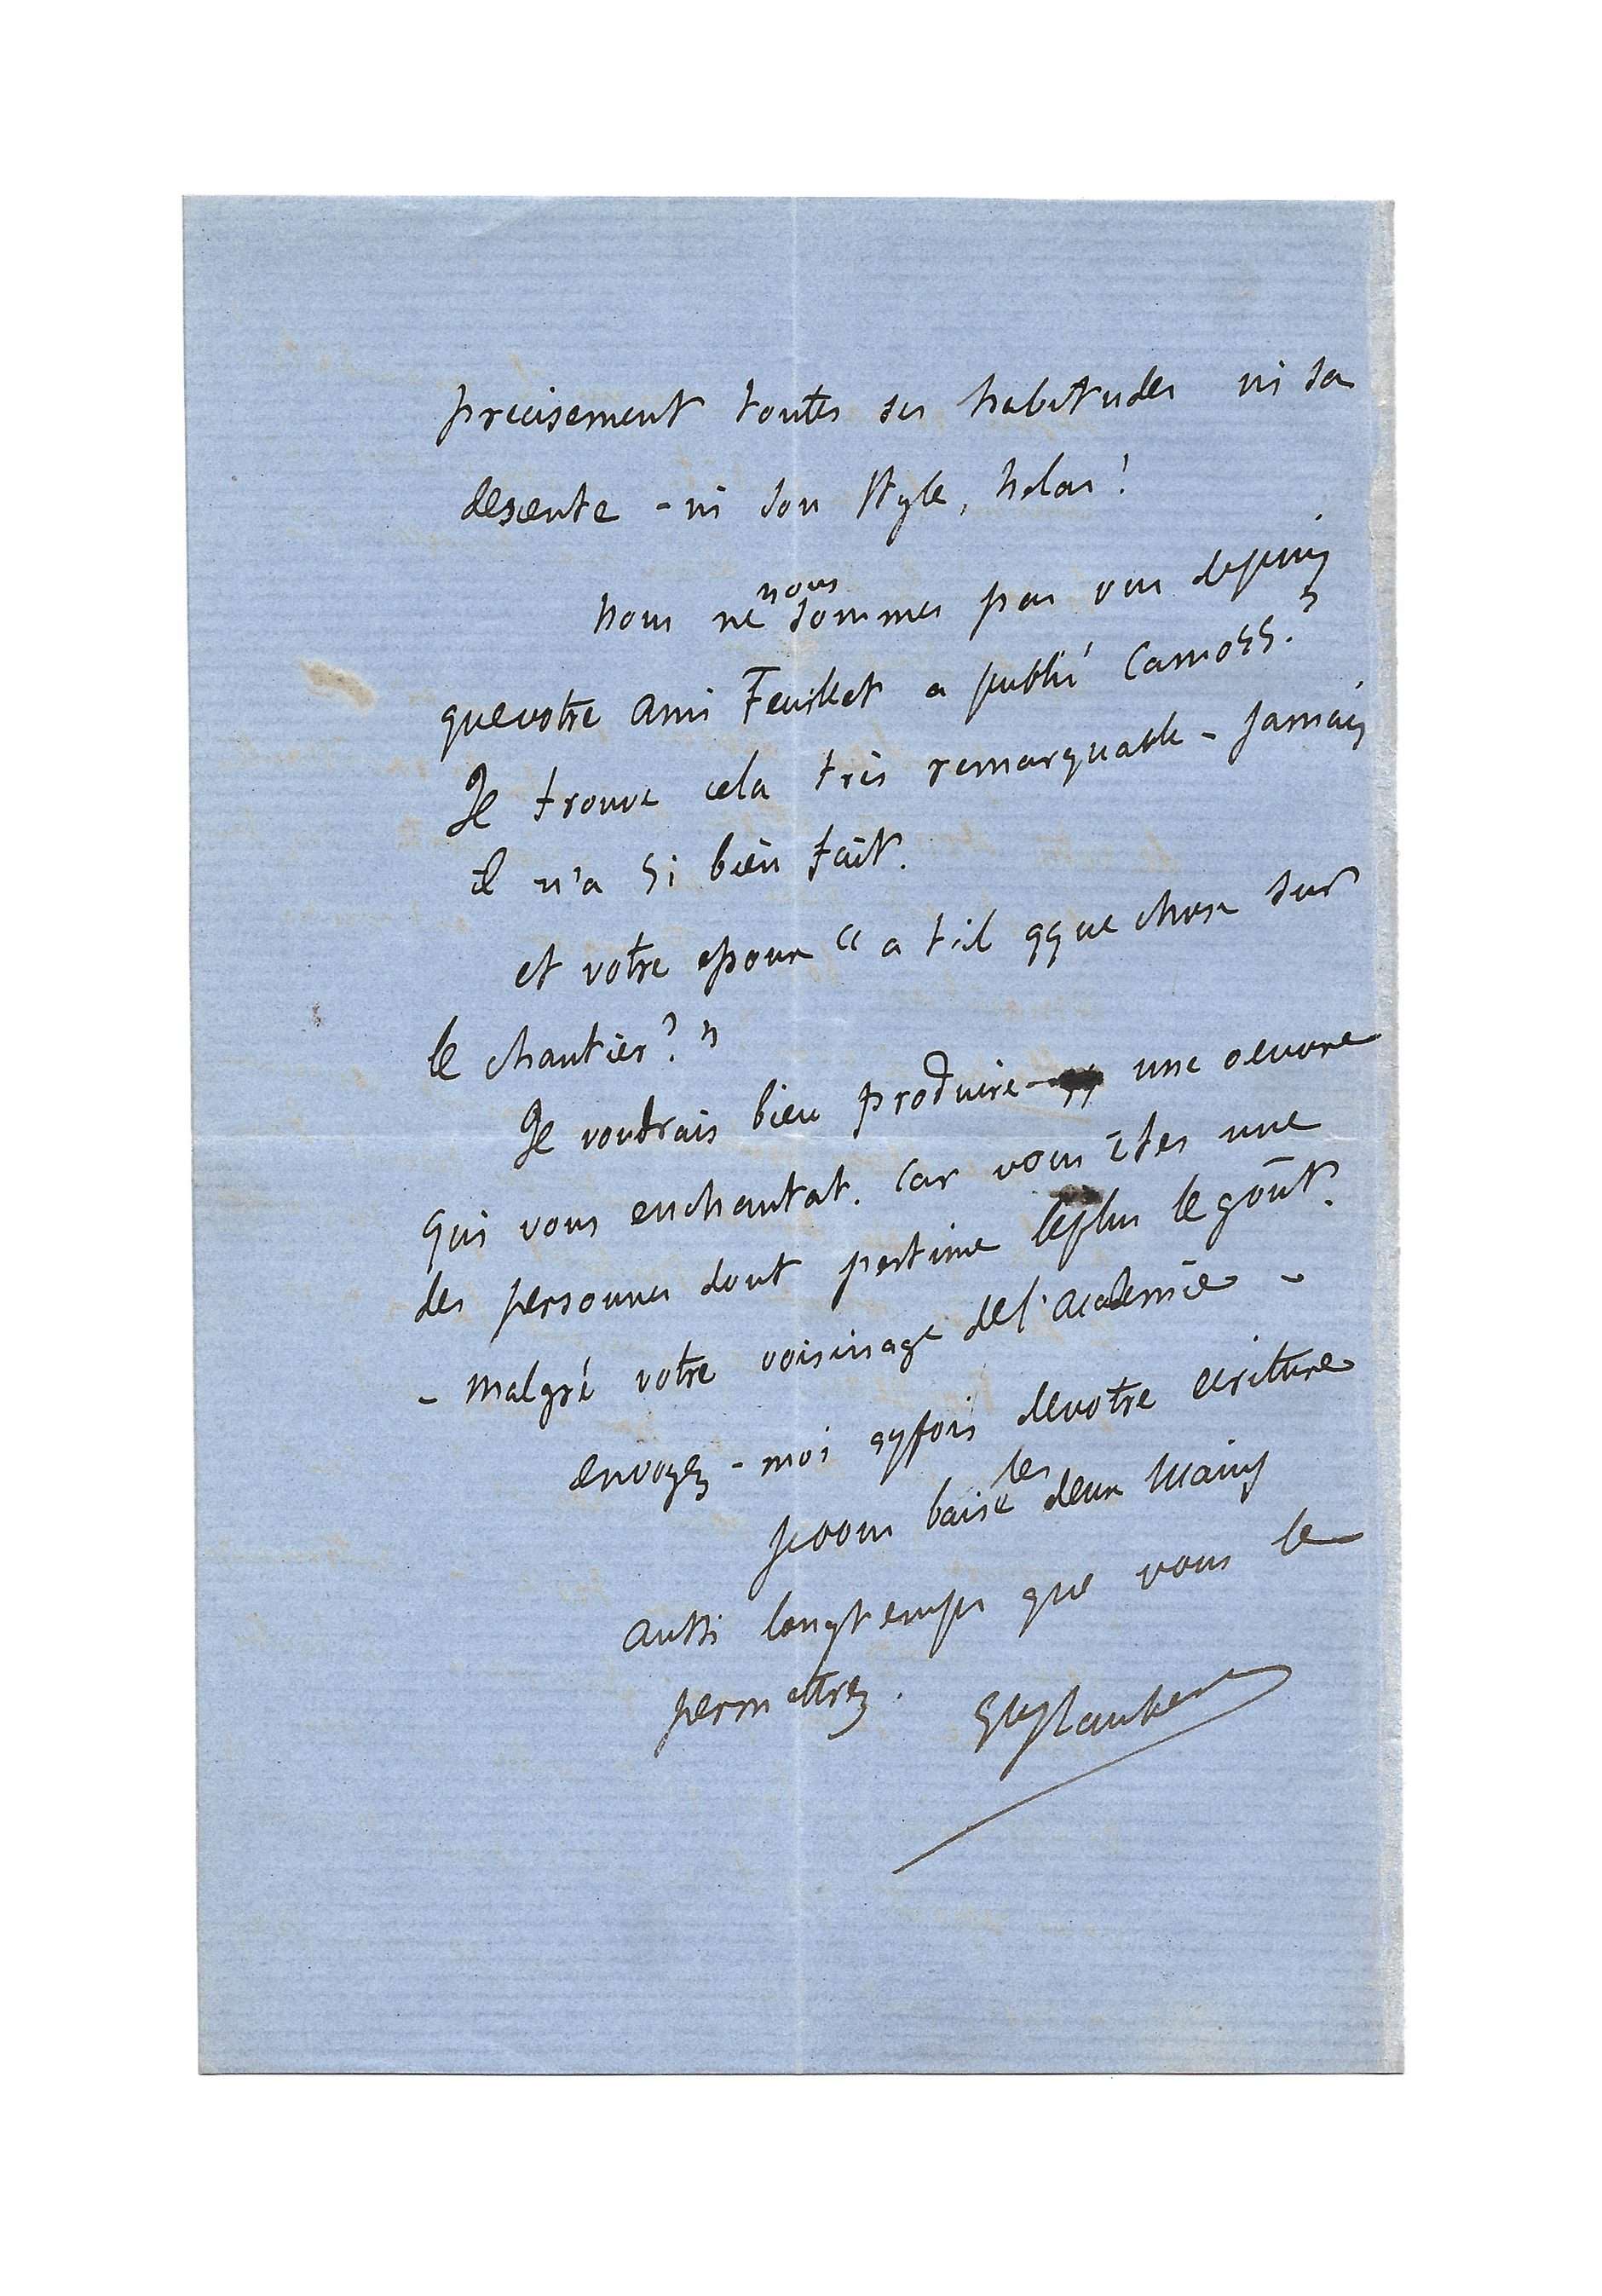 précisement toutes ses habitudes ni sa
descente - ni son style, hélas!
nous ne nous sommes pas vus depuis
que votre ami Feuillet a publié Camors.
Je trouve cela très remarquable - jamais
il n'a si bien fait.
et votre époux " a t'il qque chose sur
le chantier? "
Je voudrais bien produire une oeuvre
qui vous enchantat. Car vous êtes une
des personnes dont j'estime le plus le goût.
- malgré votre voisinage de l'académie -
envoyez-moi qqfois de votre écriture
je vous baise les deux mains
aussi longtemps que vous le
permettrez.
Gve Flaubert